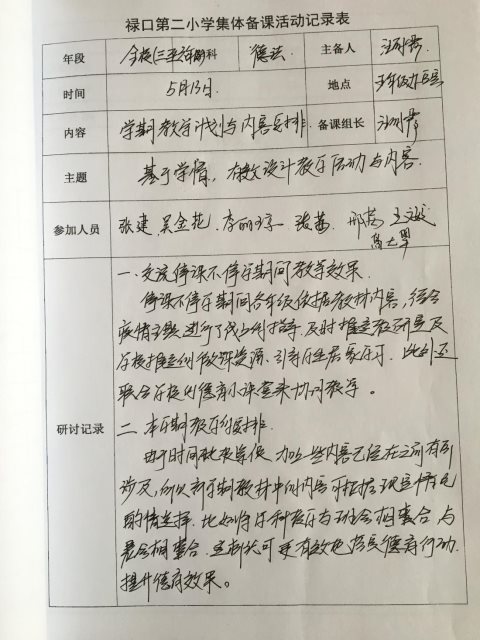 禄口第二小学集体备课活动记录表
年段 全校(三至六年级) 学科 德法 主备人
时间 5月13日 地点 五年级办公室
内容 学期教学计划与内容安排 备课组长
主题 基于学情，有效设计教学活动与内容
参加人员 张建 吴金花 李丽 张 邢 王
研讨记录
一、交流停课不停学期间教学效果
停课不停学期间各年级依据教材内容，结合
疫情主题进行了线上的指导，及时推送教研员及
学校推送的微课资源，引导学生居家学习。此外还
联合学校的德育小课堂来协同教学。
二、本学期教学的安排
由于时间比较紧促，加上一些内容已经在之前有所
涉及，所以新学期教材中的内容可根据班里情况
酌情选择。比如将学科教学与班会相整合，与
晨会相整合，这样就可更有效地落实德育行动，
提升德育效果。